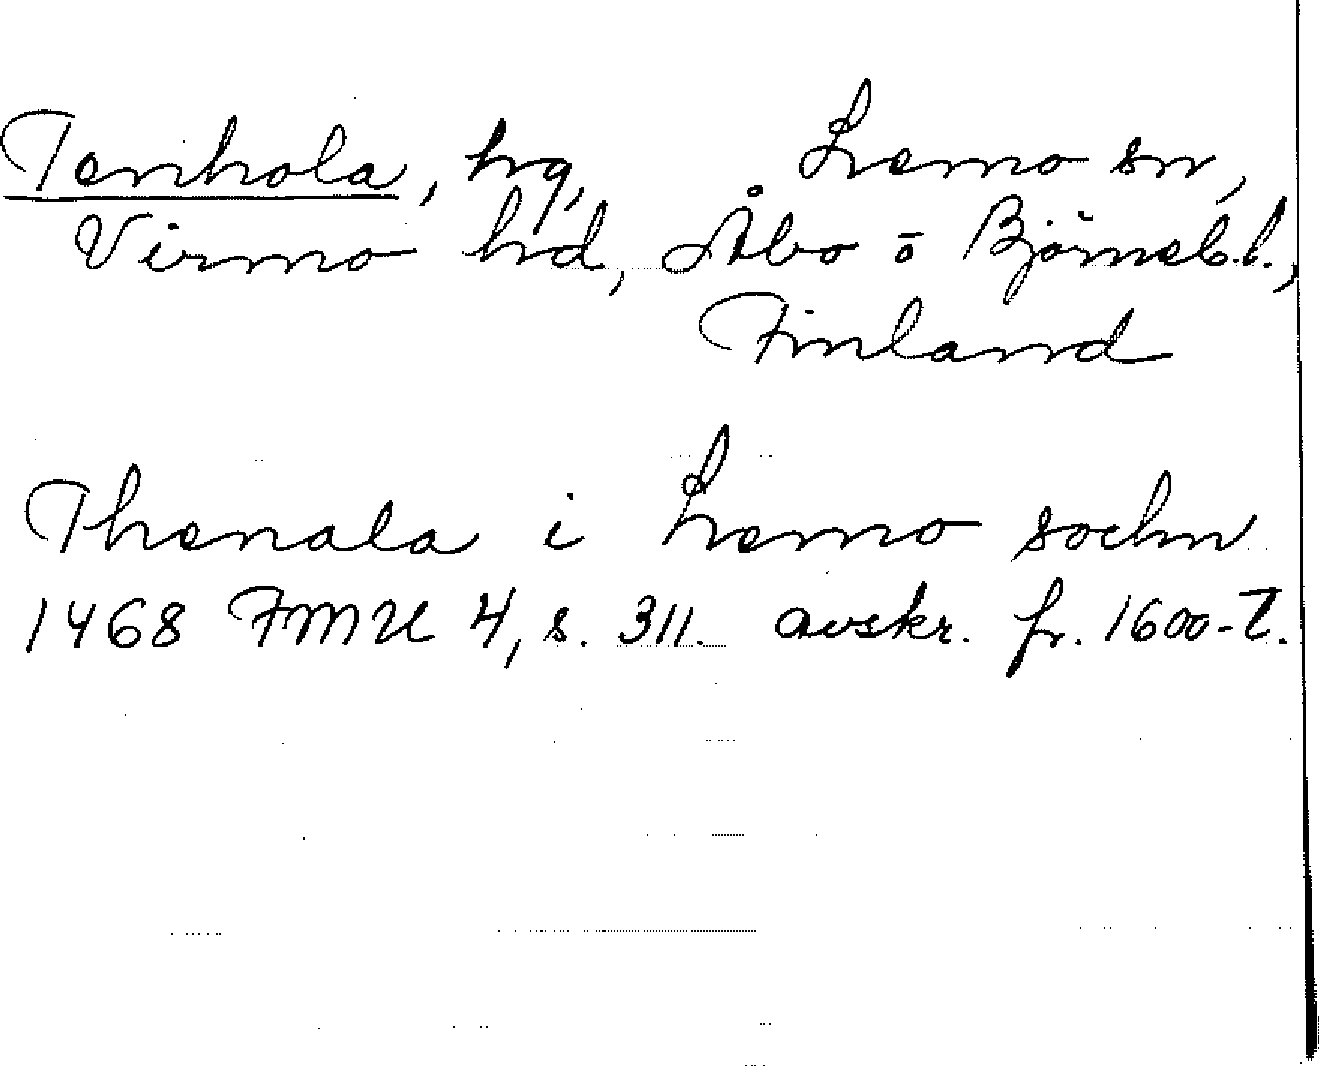 Tenhola, hg, Lemo sn,
Virmo hd, Åbo o Björneb. l.,
Finland
Thenala i Lemo sochn
1468 FMU 4, s. 311. avskr. fr. 1600-t.